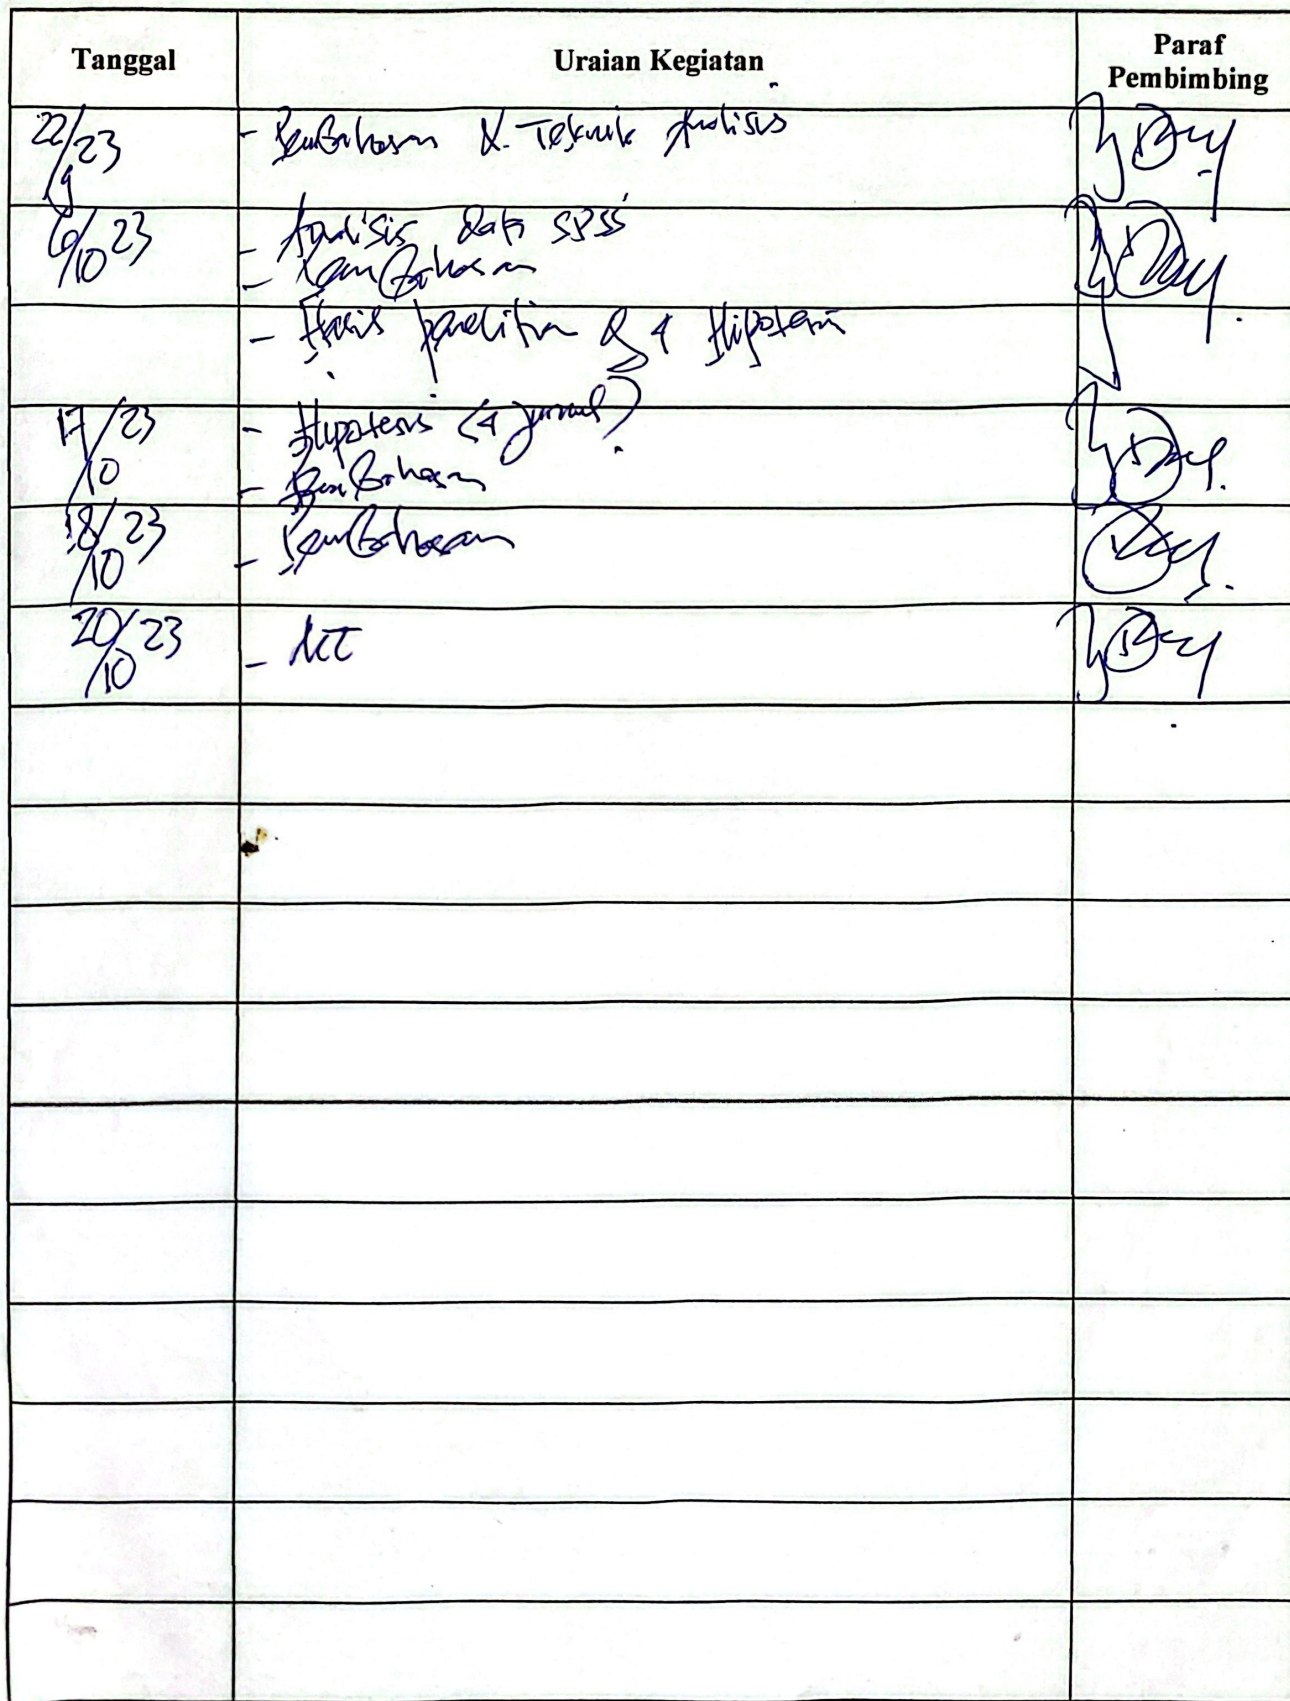 Tanggal Uraian Kegiatan Paraf
Pembimbing
22/9 23 - Pembahasan & Teknik Analisis
6/10 23 - Analisis data SPSS
- Pembahasan
- Hasil penelitian & 4 Hipotesis
17/10 23 - Hipotesis (4 jurnal)
- Pembahasan
18/10 23 - Pembahasan
20/10 23 -